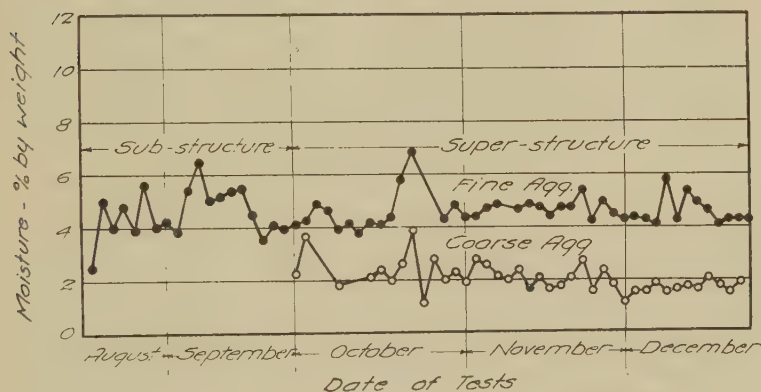 12
10
8
6
4
2
0
Moisture - % by weight
Sub-structure
Super-structure
Fine Agg.
Coarse Agg
August
September
October
November
December
Date of Tests